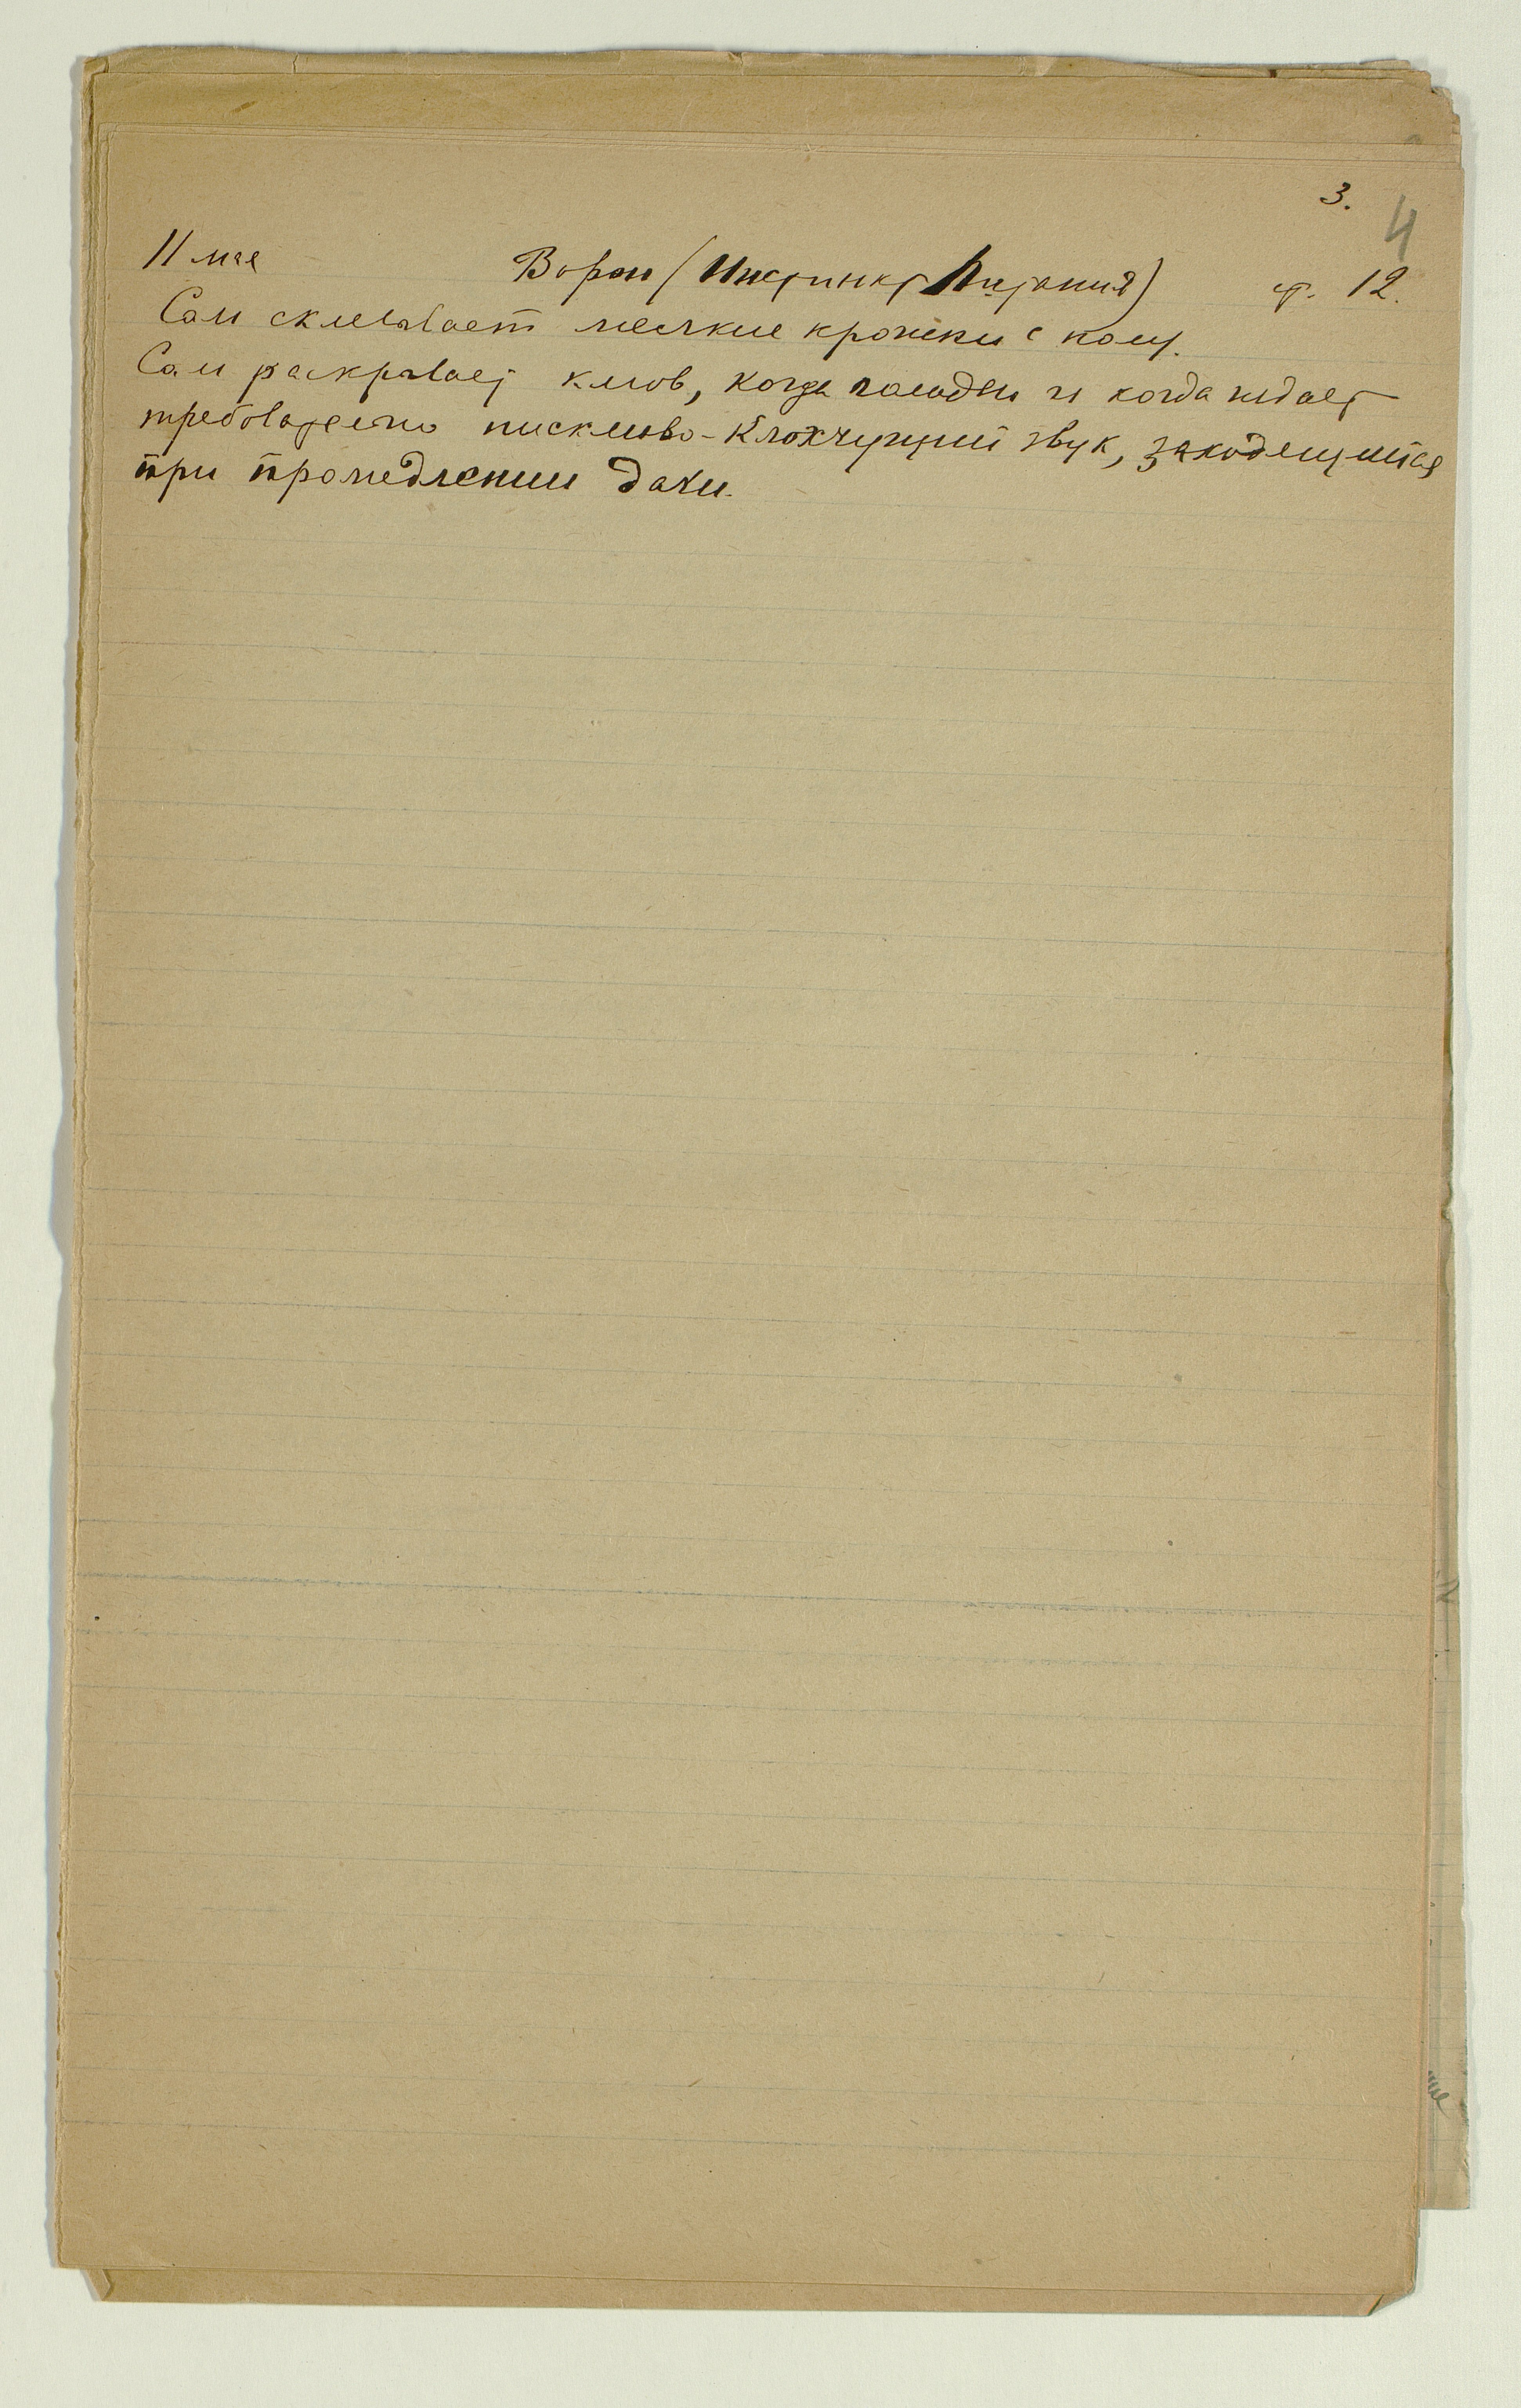 3.
4
11 мая Ворон (Инстинкт Питания) ст. 12.
Сам склевывает мелкие крошки с полу.
Сам раскрывает клюв, когда голоден и когда издает
требовательно пискливо-клокчущий звук, заходящийся
при промедлении дачи.